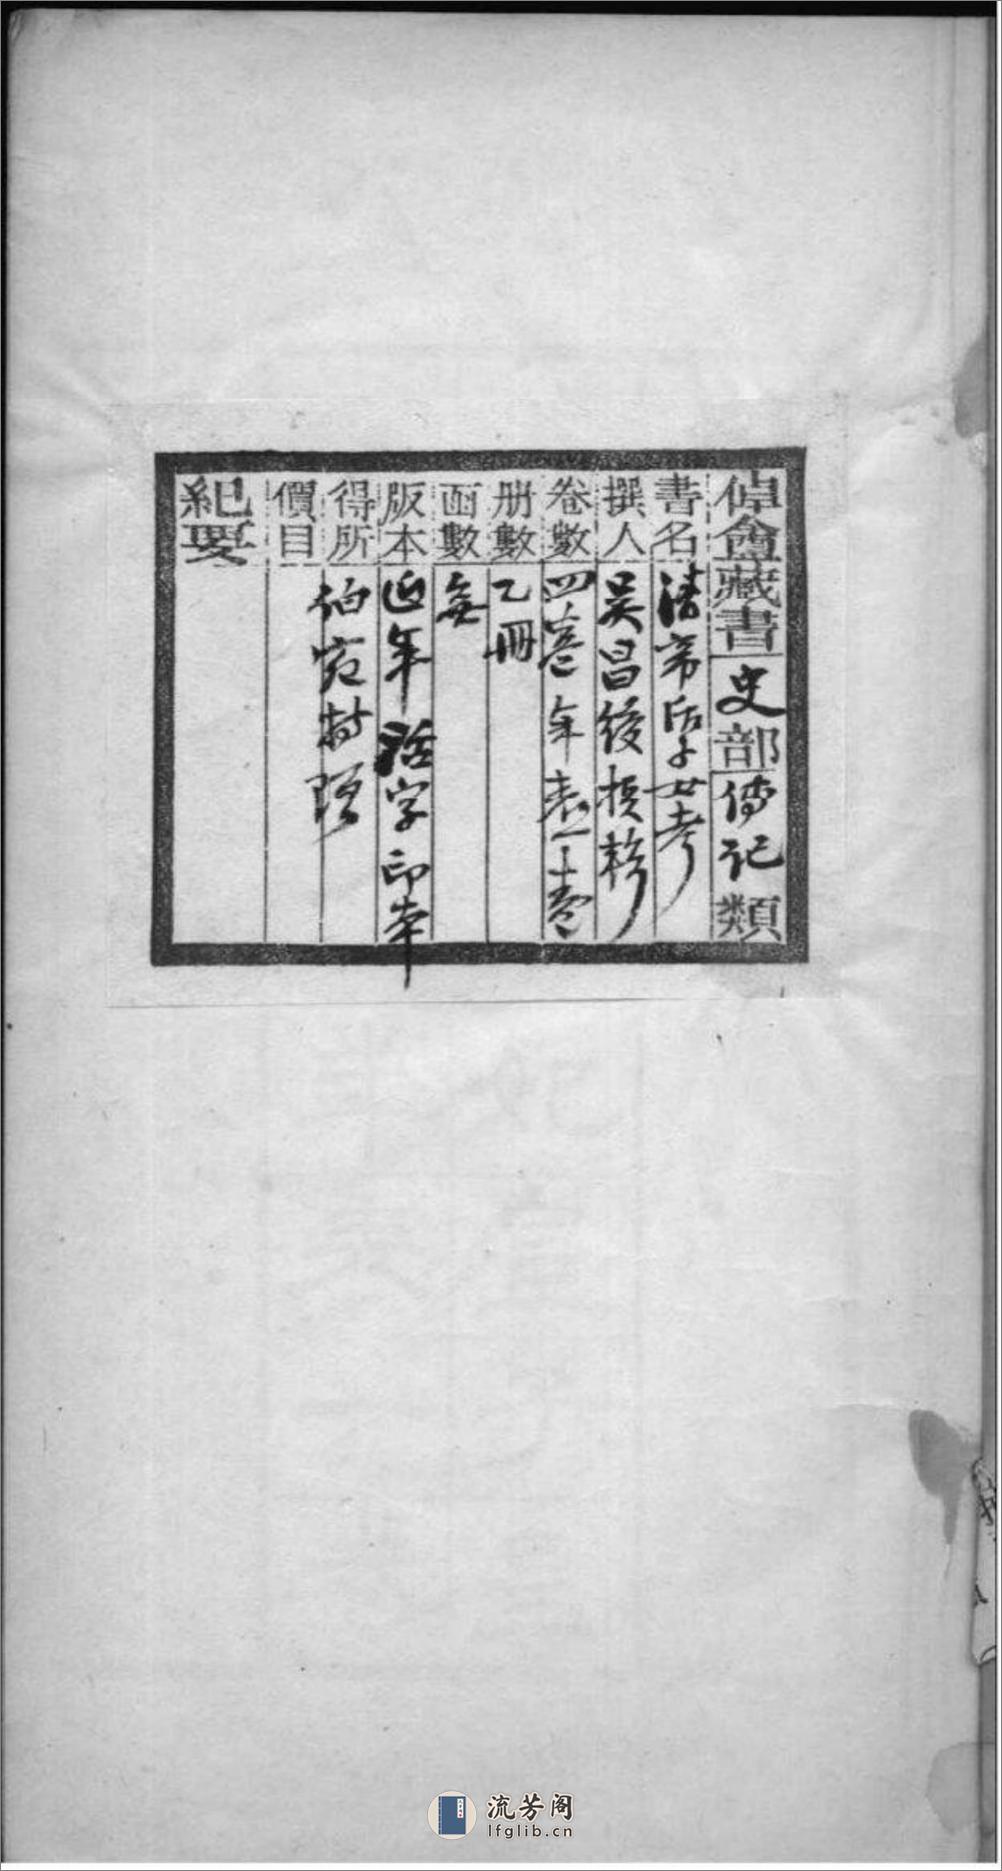 倬盦藏書 史部 傳記類
書名 清帝后子女考
撰人 吳昌綬撰稿
卷數 四卷年表一卷
册數 乙冊
函數 無
版本 近年活字印本
得所 伯宛持贈
價目
紀要
流芳阁
lfglib.cn